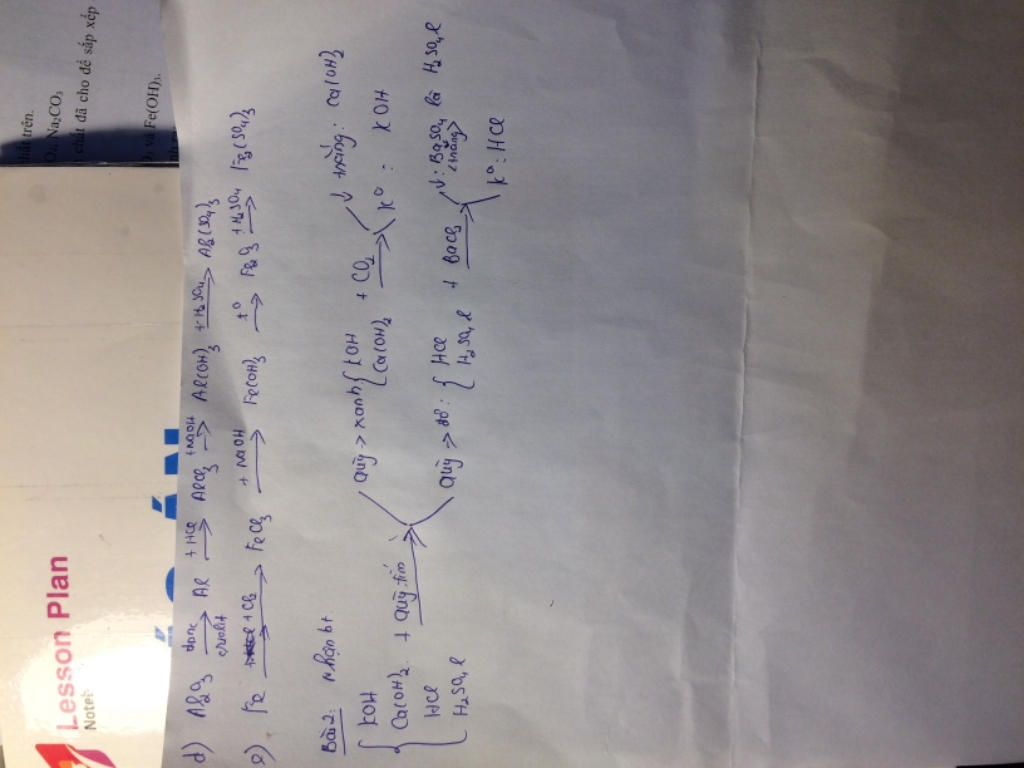 hất trên.
Na₂CO₃
chất đã cho để sắp xếp
và Fe(OH)₃
Lesson Plan
ÁN
d) Al₂O₃ đpnc → criolit Al + HCl → AlCl₃ + NaOH → Al(OH)₃ + H₂SO₄ → Al₂(SO₄)₃
e) Fe + Cl₂ → FeCl₃ + NaOH → Fe(OH)₃ t° → Fe₂O₃ + H₂SO₄ → Fe₂(SO₄)₃
Bài 2: nhận bt
{ KOH
Ca(OH)₂
HCl
H₂SO₄ l
+ Quỳ tím →
Quỳ > xanh { KOH
Ca(OH)₂ + CO₂ →
↓ trắng: Ca(OH)₂
K⁰: KOH
Quỳ > đỏ: { HCl
H₂SO₄ l + BaCl₂ →
↓: BaSO₄ <trắng> là H₂SO₄ l
K⁰: HCl